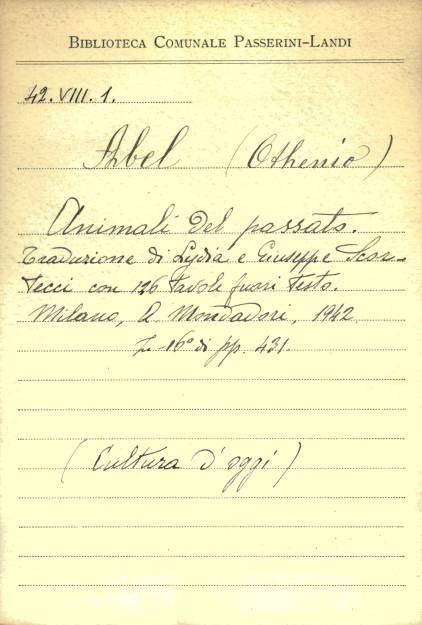 BIBLIOTECA COMUNALE PASSERINI-LANDI
42.VIII.1.
Abel (Othenio)
Animali del passato.
Traduzione di Lydia e Giuseppe Scor-
tecci con 126 tavole fuori testo.
Milano, A. Mondadori, 1942
In-16° di pp. 431.
(Cultura d'oggi)